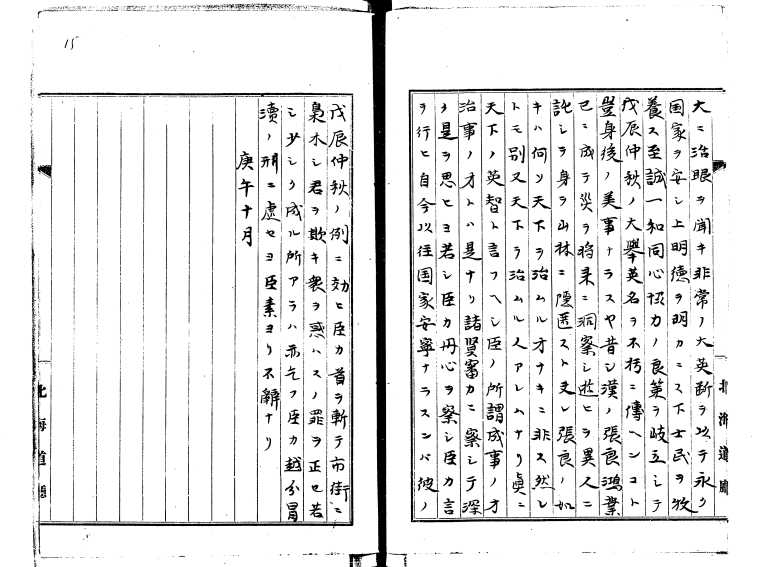 大ニ治眼ヲ聞キ非常ノ大英断ヲ以テ永ク
国家ヲ安シ上明徳ヲ明カニス下士民ヲ牧
養ス至誠一和同心協力ノ良策ヲ岐立シテ
戊辰仲秋ノ大舉英名ヲ不朽ニ傳ヘンコト
豈身後ノ美事ナラスヤ昔シ漢ノ張良鴻業
已ニ成テ災ヲ将来ニ洞察シ遊ヒヲ異人ニ
託シテ身ヲ山林ニ隠匿スト夫レ張良ノ如
キハ何ソ天下ヲ治ムル才ナキニ非ス然レ
トモ別又天下ヲ治ムル人アレハナリ眞ニ
天下ノ英智ト言フヘシ臣ノ所謂成事ノ才
治事ノ才トハ是ナリ諸賢審カニ察シテ深
ク是ヲ思ヒヨ若シ臣カ丹心ヲ察シ臣カ言
ヲ行ヒ自今以往国家安寧ナラスンバ彼ノ
戊辰仲秋ノ例ニ効ヒ臣カ首ヲ斬テ市街ニ
梟木シ君ヲ欺キ衆ヲ惑ハスノ罪ヲ正セ若
シ少シク成ル所アラハ亦乞フ臣カ越分冒
瀆ノ刑ニ處セヨ臣素ヨリ不辭ナリ
庚午十月
15
北海道廳
北海道廳